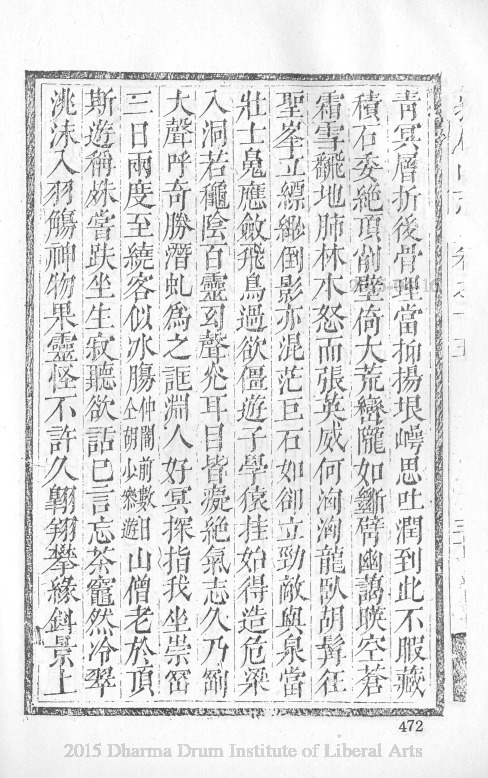 青冥層折後骨理當抑揚垠崿思吐潤到此不暇藏
積石委絶頂削壁倚大荒巒隴如斷劈幽藹暎空蒼
霜雪飜地肺林木怒而張英威何洶洶龍臥胡髯狂
聖峯立縹緲倒影亦混茫巨石如卻立勁敵與泉當
壯士鬼應斂飛鳥過欲僵遊子學猿挂始得造危梁
入洞若龜陰百靈幻聲光耳目皆癡絶氣志久乃剛
大聲呼奇勝潛虬爲之誆淵人好冥探指我坐崇岡
三日兩度至繞客似冰腸仲闇前數日仝胡少參遊山僧老於頂
斯遊稱姝嘗趺坐生寂聽欲話已言忘茶竈然冷翠
洮沫入羽觴神物果靈怪不許久翺翔攀緣斜景上
472
2015 Dharma Drum Institute of Liberal Arts